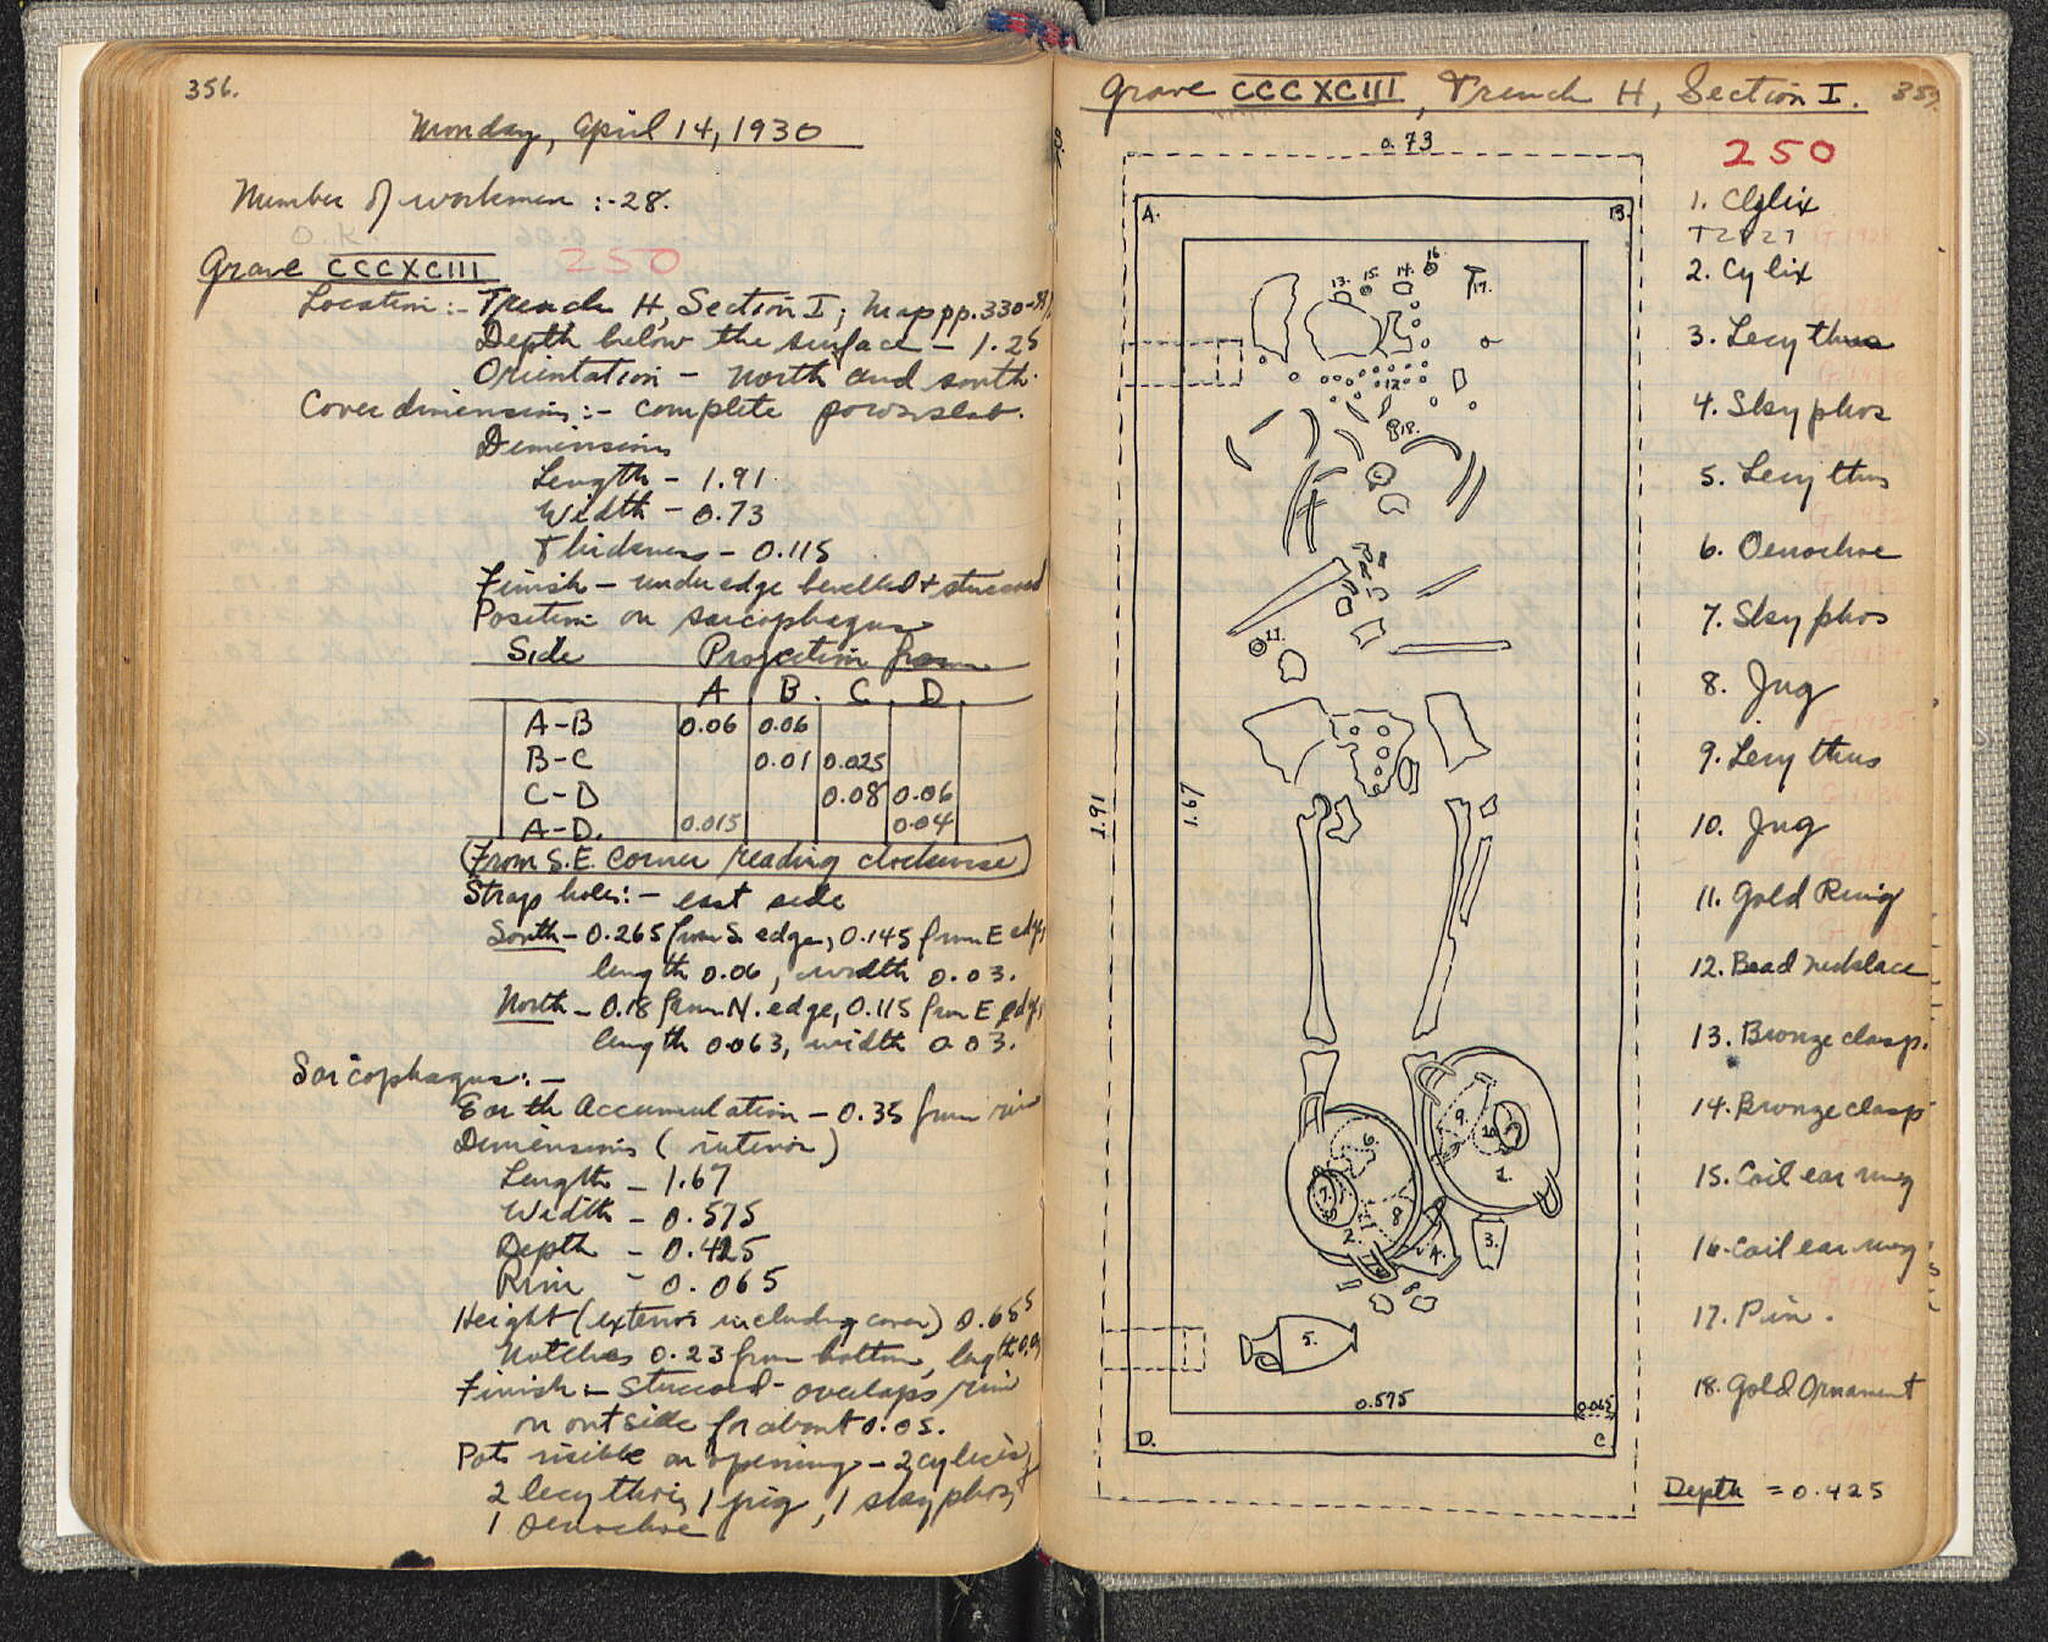 356.
Monday, April 14, 1930
Number of workmen :- 28.
O.K.
Grave CCCXCIII 250
Location :- Trench H, Section I; Map pp. 330-
Depth below the surface - 1.25
Orientation - North and south.
Cover dimensions :- complete poros slab.
Dimensions
Length - 1.91
Width - 0.73
Thickness - 0.115
Finish - under edge bevelled + stuccoed
Position on sarcophagus
Side Projection from
A B. C. D.
A-B 0.06 0.06
B-C 0.01 0.025
C-D 0.08 0.06
A-D. 0.015 0.04
(From S.E. Corner reading clockwise)
Strap holes :- east side
South - 0.265 from S. edge, 0.145 from E edge,
length 0.06, width 0.03.
North - 0.18 from N. edge, 0.115 from E edge,
length 0.063, width 0.03.
Sarcophagus :-
Earth Accumulation - 0.35 from rim
Dimensions (interior)
Length - 1.67
Width - 0.575
Depth - 0.425
Rim - 0.065
Height (exterior including cover) 0.655
Notches 0.23 from bottom, length
Finish :- Stuccoed - overlaps rim
on outside for about 0.05.
Pots visible on opening - 2 cylices,
2 lecythoi, 1 jug, 1 skyphos,
1 oenochoe
Grave CCCXCIII, Trench H, Section I. 357.
250
0.73
A. B.
16.
13. 15. 14. 17.
12.
18.
11.
1.91
1.67
9.
6. 10.
7. 1.
8
2. 4. 3.
5.
0.575 0.065
D. C.
1. Cylix
T2827
2. Cylix
3. Lecythus
4. Skyphos
5. Lecythus
6. Oenochoe
7. Skyphos
8. Jug
9. Lecythus
10. Jug
11. Gold Ring
12. Bead necklace
13. Bronze clasp.
14. Bronze clasp
15. Coil ear ring
16. Coil ear ring
17. Pin.
18. Gold Ornament
Depth = 0.425